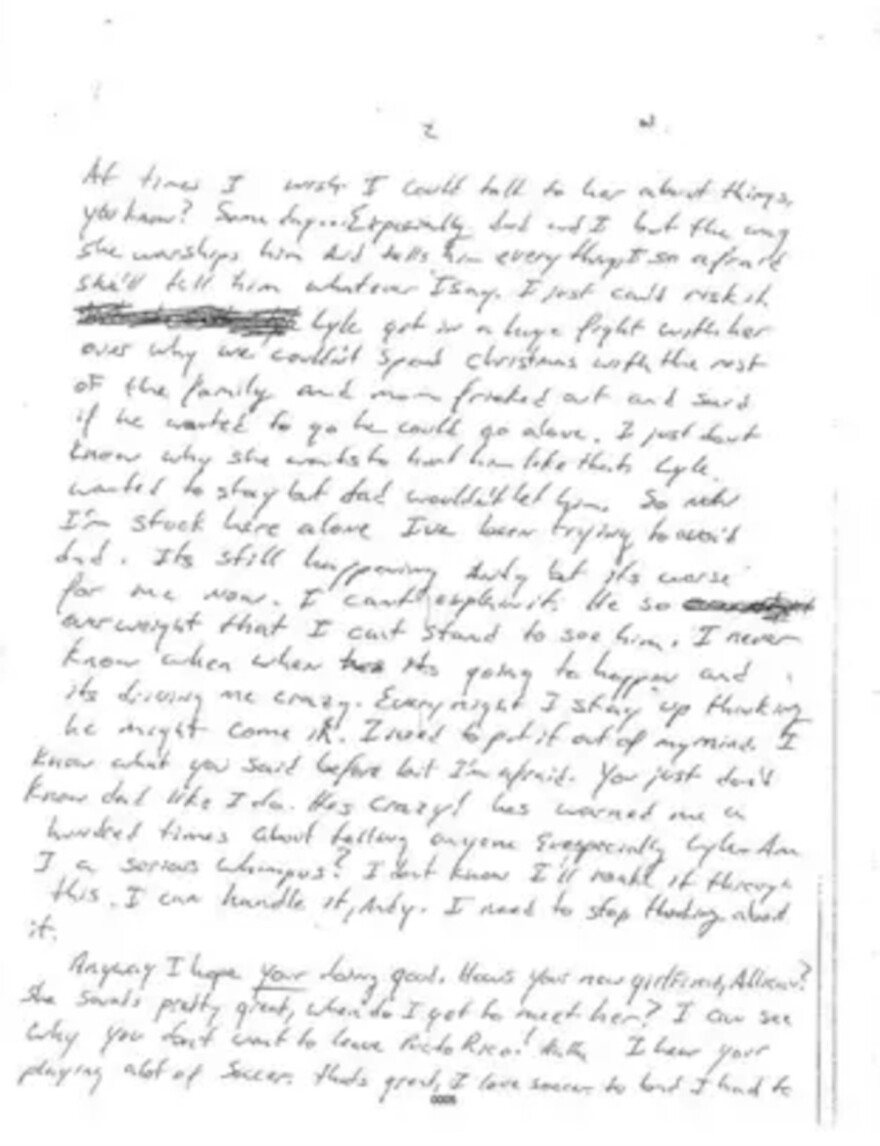 2
At times I wish I could talk to her about things,
you know? Some day... Especially dad and I but the way
she worships him and tells him everything I so afraid
she'll tell him whatever I say. I just can't risk it
Lyle got in a huge fight with her
over why we couldn't spend christmas with the rest
of the family and mom freaked out and said
if he wanted to go he could go alone. I just dont
know why she wants to hurt him like that. Lyle
wanted to stay but dad wouldn't let him. So now
I'm stuck here alone I've been trying to avoid
dad. Its still happening Andy but its worse
for me now. I can't explain it. He so
overweight that I cant stand to see him. I never
know when when its going to happen and
its driving me crazy. Every night I stay up thinking
he might come in. I need to put it out of my mind. I
know what you said before but I'm afraid. You just don't
know dad like I do. Hes crazy! hes warned me a
hundred times about telling anyone especially Lyle. Am
I a serious whimpus? I dont know I'll make it through
this. I can handle it, Andy. I need to stop thinking about
it.
Anyway I hope your doing good. Hows your new girlfriend, Allison?
She sounds pretty great, when do I get to meet her? I can see
why you don't want to leave Puerto Rico! I hear your
playing alot of soccer. thats great, I love soccer to but I had to